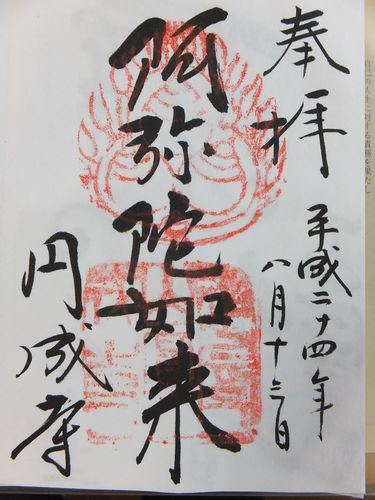 奉拝
平成二十四年
八月十三日
阿弥陀如来
円成寺